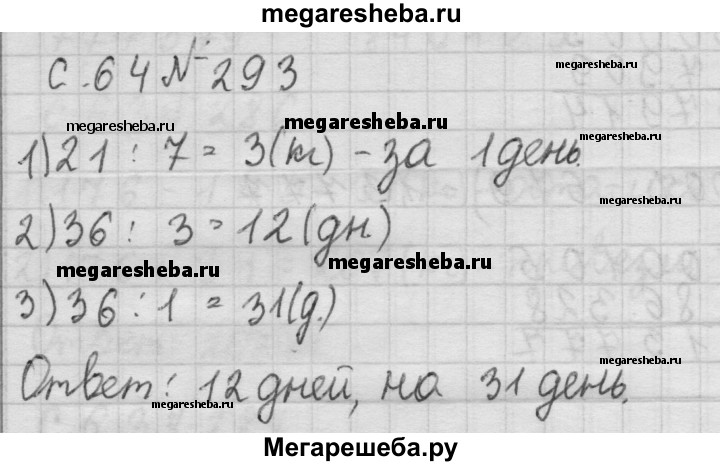 megaresheba.ru
с. 64 № 293
megaresheba.ru
megaresheba.ru
megaresheba.ru
megaresheba.ru
1) 21 : 7 = 3(кг) - за 1 день.
megaresheba.ru
2) 36 : 3 = 12(дн)
megaresheba.ru
megaresheba.ru
3) 36 : 1 = 31(д.)
megaresheba.ru
Ответ: 12 дней, на 31 день.
megaresheba.ru
Мегарешеба.ру